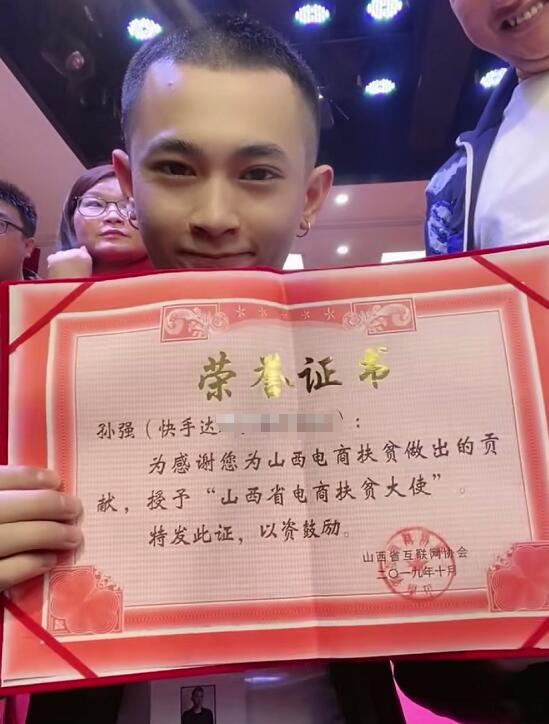 荣誉证书
孙强（快手达 ）：
为感谢您为山西电商扶贫做出的贡
献，授予“山西省电商扶贫大使”。
特发此证，以资鼓励。
山西省互联网协会
二〇一九年十月